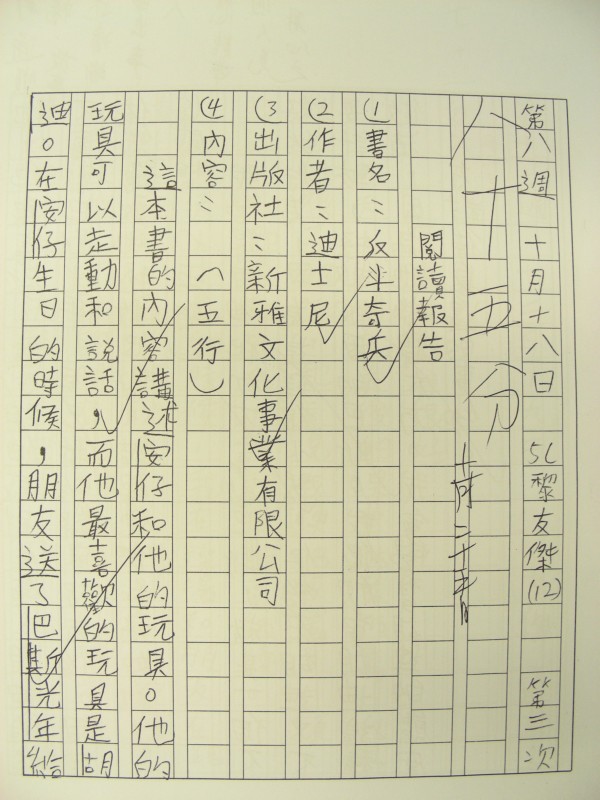 第八週 十月十八日 5C黎友傑(12) 第三次
八十五分
十月二十五日
閱讀報告
(1書名：反斗奇兵
(2作者：迪士尼
(3出版社：新雅文化事業有限公司
(4內容：(五行)
這本書的內容講述安仔和他的玩具。他的
玩具可以走動和說話，而他最喜歡的玩具是胡
迪。在安仔生日的時候，朋友送了巴斯光年給